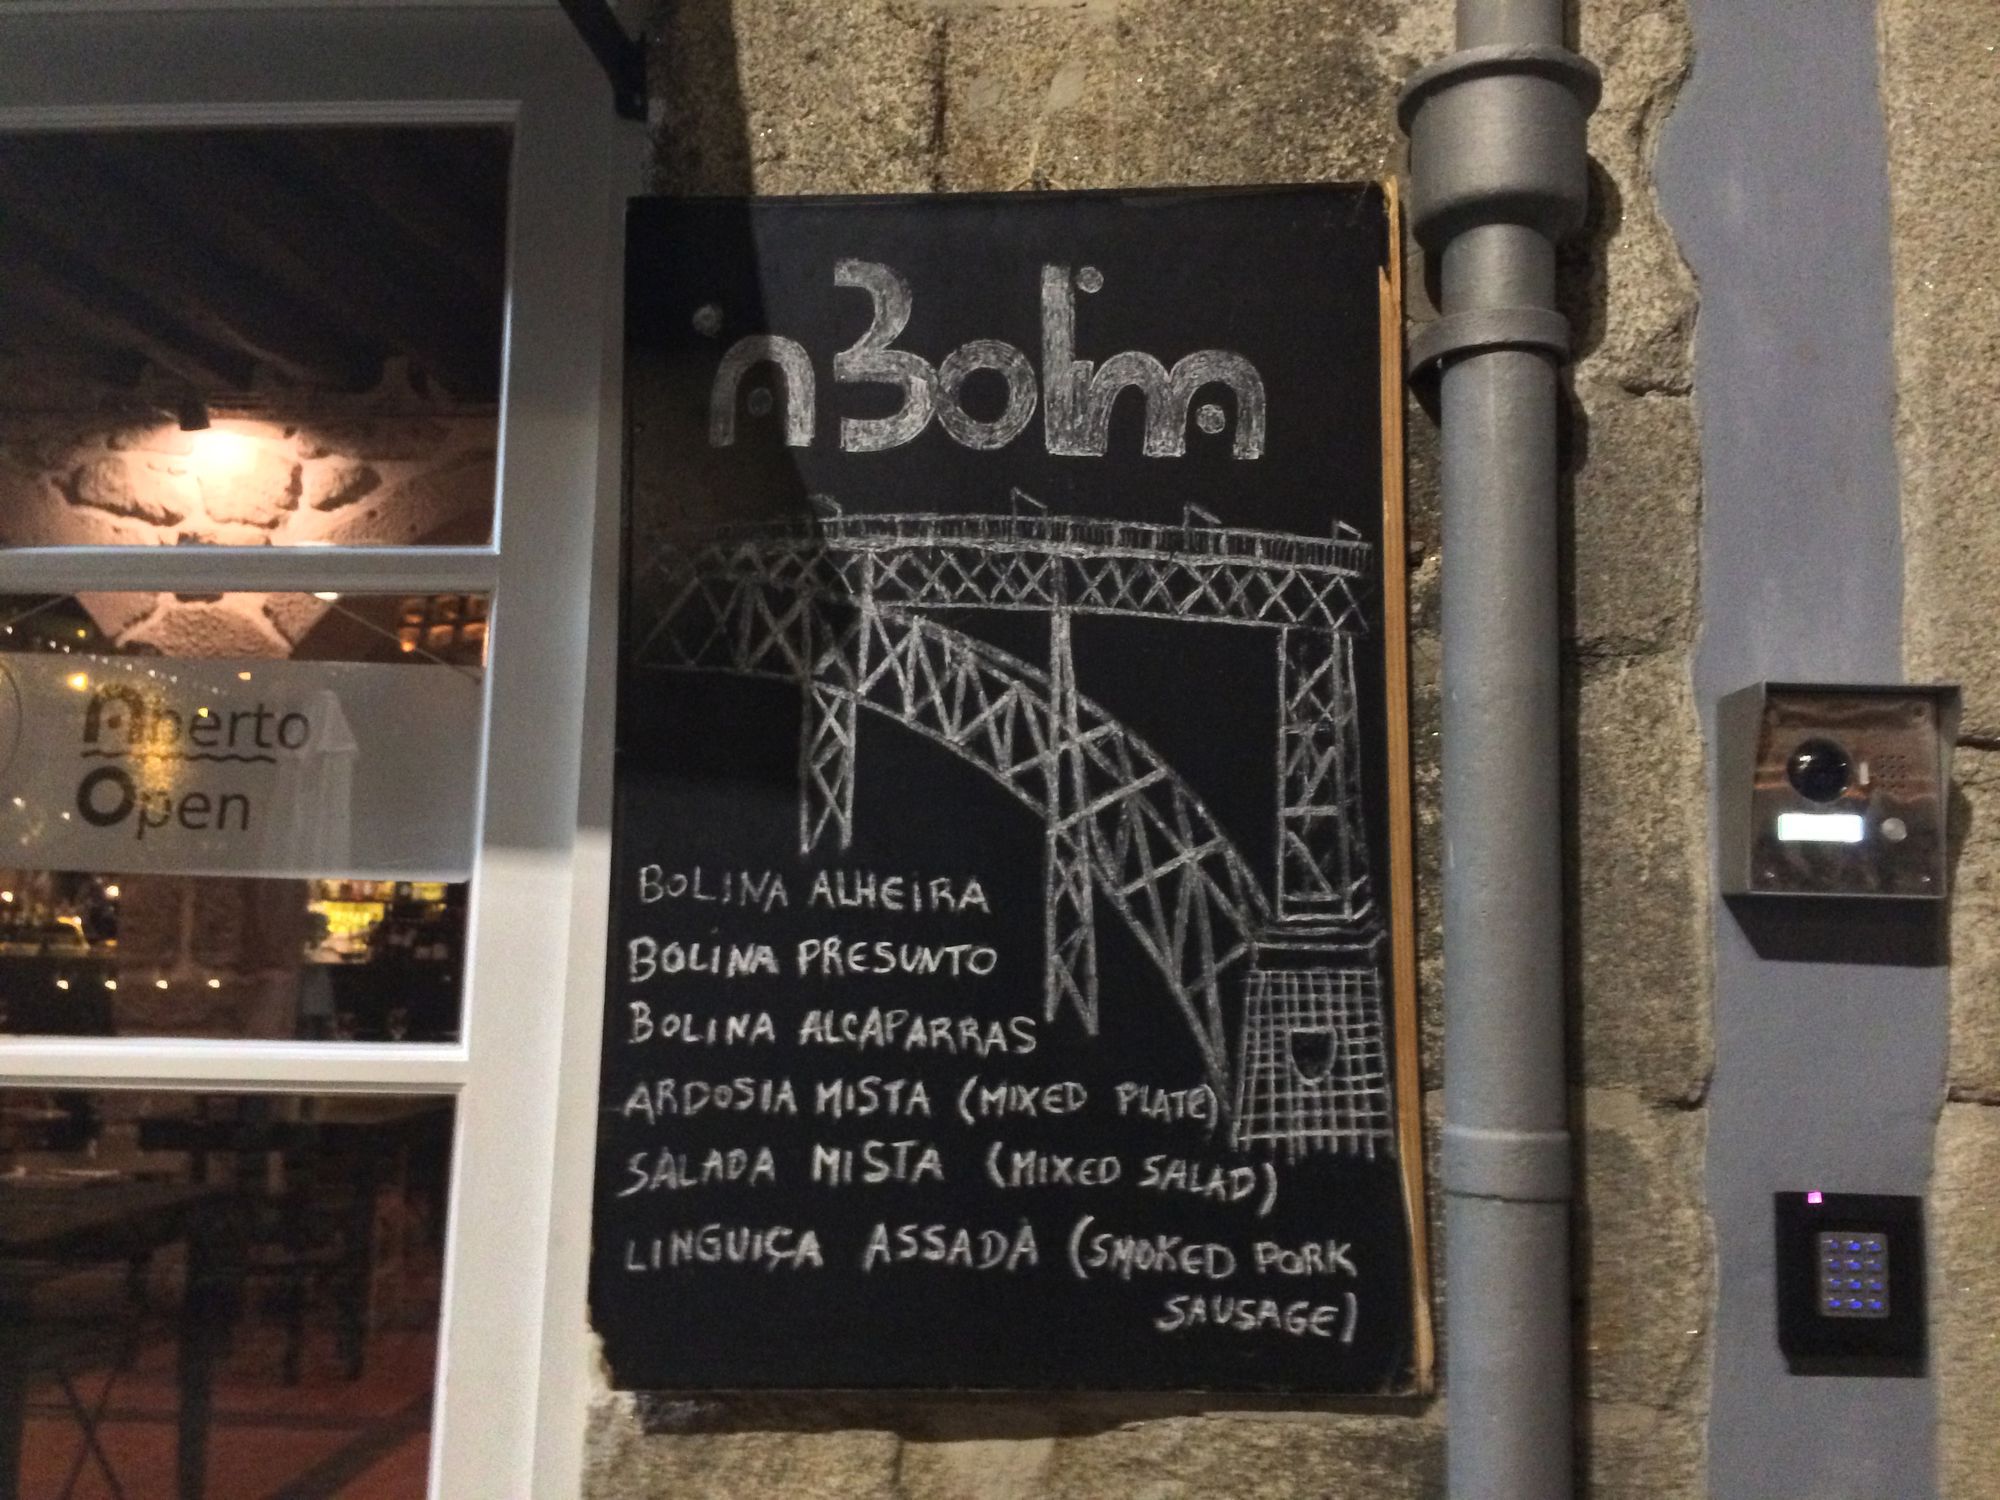 inBolina
Aberto
Open
BOLINA ALHEIRA
BOLINA PRESUNTO
BOLINA ALCAPARRAS
ARDOSIA MISTA (MIXED PLATE)
SALADA MISTA (MIXED SALAD)
LINGUIÇA ASSADA (SMOKED PORK
SAUSAGE)